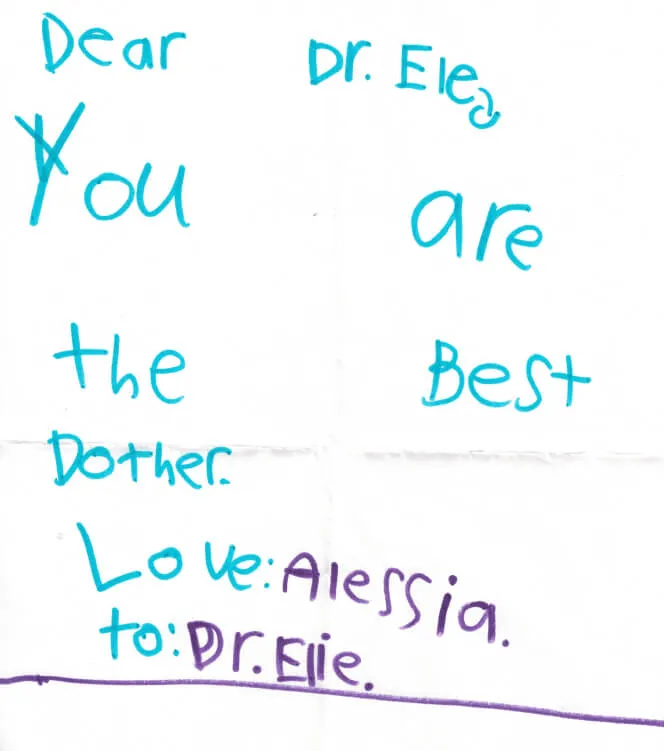 Dear Dr. Ele,
You are
the Best
Dother.
Love: Alessia.
to: Dr. Elie.